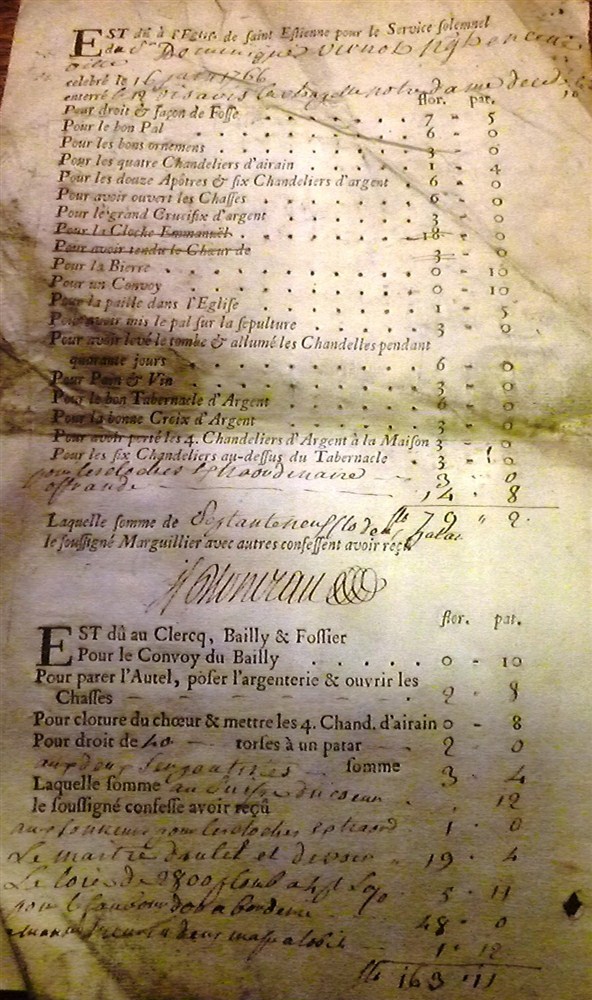 EST dû à l'Eglise de saint Estienne pour le Service solemnel
du Sr. Dominique
celebré le 16 1766
enterré le 19 vis avis la chapelle notre dame de
flor. pat.
Pour droit & façon de Fosse 7 - 5
Pour le bon Pal 6 - 0
Pour les bons ornemens 3 - 0
Pour les quatre Chandeliers d'airain 1 - 4
Pour les douze Apôtres & six Chandeliers d'argent 6 - 0
Pour avoir ouvert les Chasses 6 - 0
Pour le grand Crucifix d'argent 3 - 0
Pour la Cloche Emmanuël 18 - 0
Pour avoir tendu le Chœur de 3 - 0
Pour la Bierre 0 - 10
Pour un Convoy 0 - 10
Pour la paille dans l'Eglise 1 - 5
Pour avoir mis le pal sur la sepulture 3 - 0
Pour avoir levé le tombe & allumé les Chandelles pendant
quarante jours 6 - 0
Pour Pain & Vin 3 - 0
Pour le bon Tabernacle d'Argent 6 - 0
Pour la bonne Croix d'Argent 3 - 0
Pour avoir porté les 4. Chandeliers d'Argent à la Maison 3 - 0
Pour les six Chandeliers au-dessus du Tabernacle 3 - 0
pour les cloches 3 0
offrande 14 - 8
Laquelle somme de 79 " 2
le soussigné Marguillier avec autres confessent avoir reçû
flor. pat.
EST dû au Clercq, Bailly & Fossier
Pour le Convoy du Bailly 0 - 10
Pour parer l'Autel, poser l'argenterie & ouvrir les
Chasses 2 - 8
Pour cloture du chœur & mettre les 4. Chand. d'airain 0 - 8
Pour droit de 40 torses à un patar 2 - 0
aux deux somme 3 - 4
Laquelle somme au du coeur 12
le soussigné confesse avoir reçû
aux sonneurs pour les cloches extraord 1 - 0
Le maitre et 19 - 4
5 - 11
48 - 0
1 - 12
163 " 11